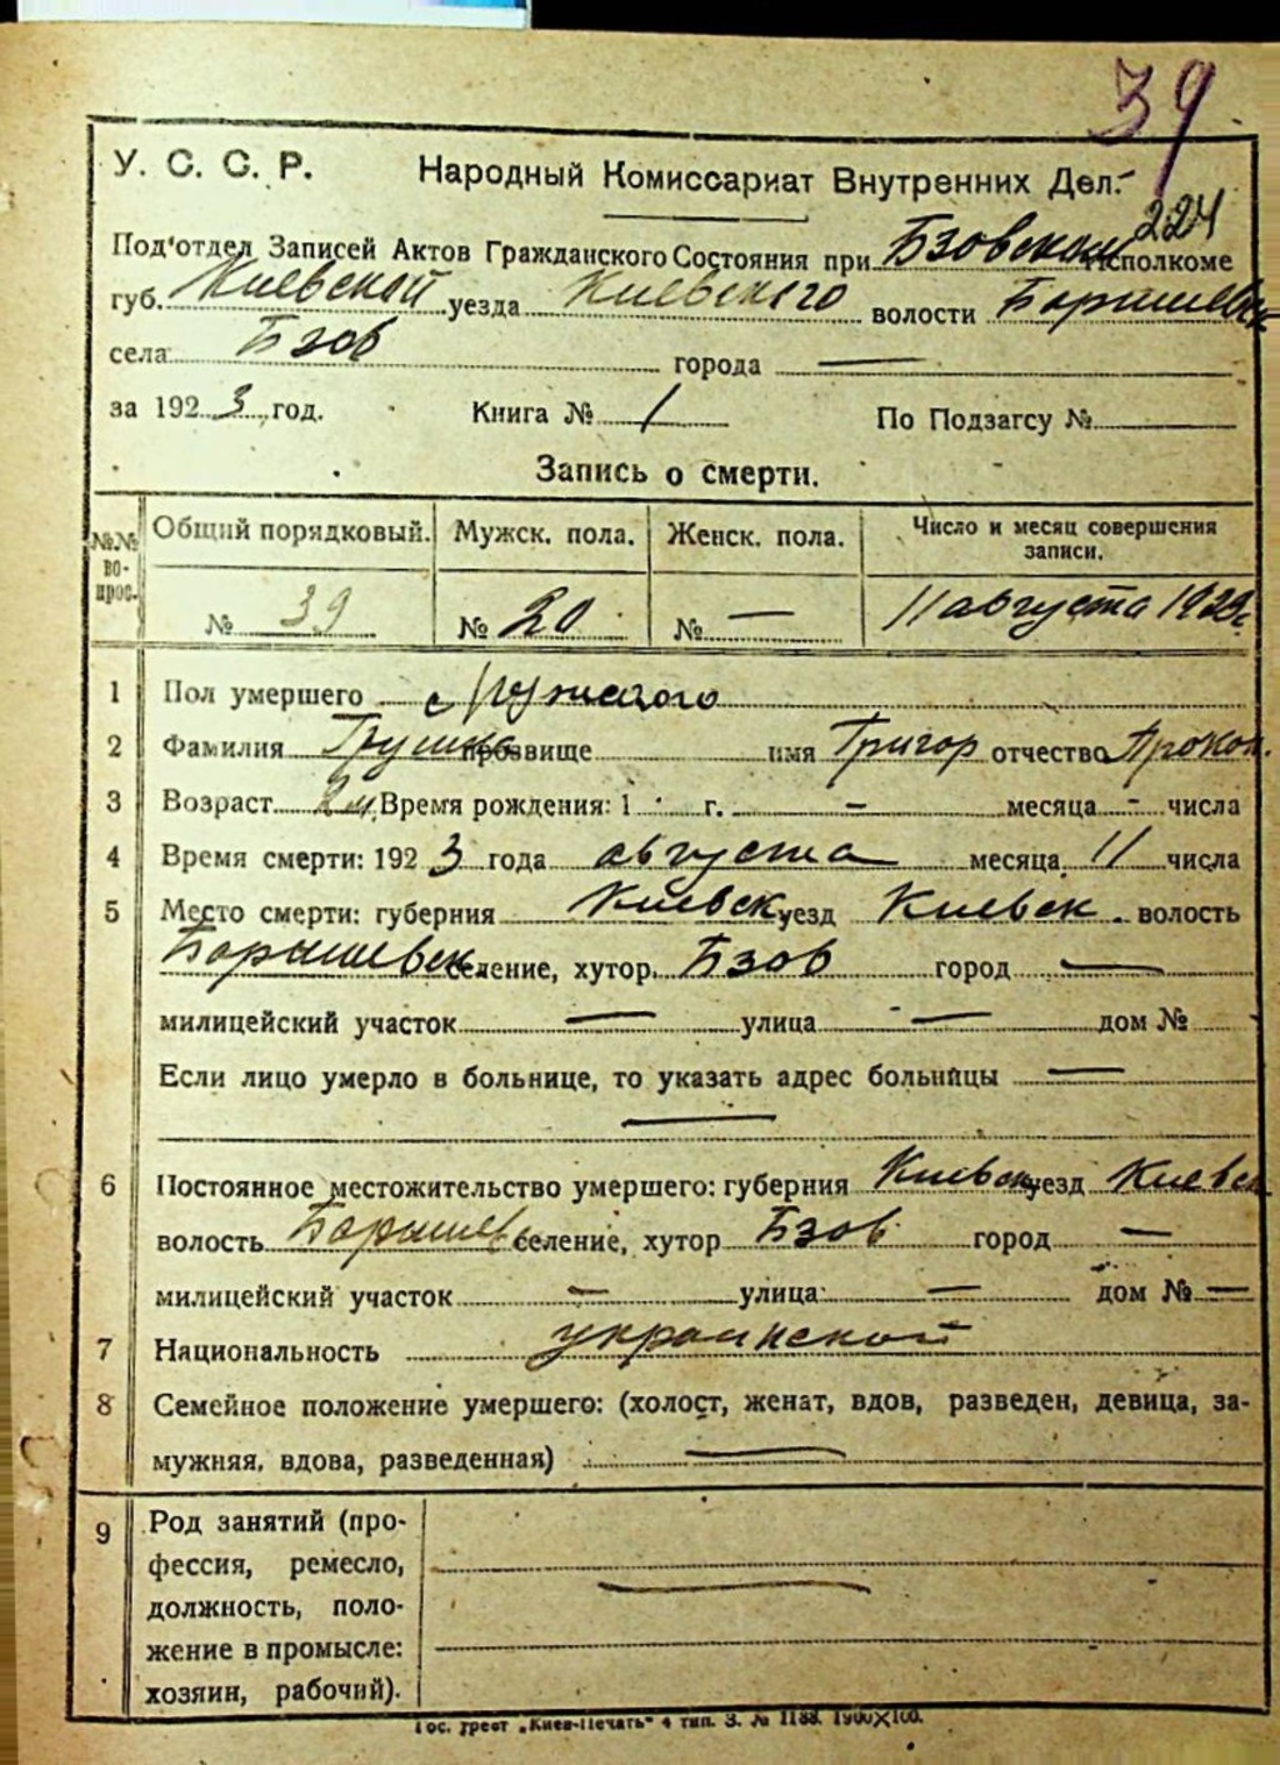 39
У. С. С. Р. Народный Комиссариат Внутренних Дел.
224
Под'отдел Записей Актов Гражданского Состояния при Бзовском Исполкоме
губ. Киевской уезда Киевского волости Барышевск
села Бзов города —
за 1923 год. Книга № 1 По Подзагсу №
Запись о смерти.
№№ вопрос. Общий порядковый. Мужск. пола. Женск. пола. Число и месяц совершения записи.
№ 39 № 20 № — 11 августа 1923 г.
1 Пол умершего Мужского
2 Фамилия Грушка прозвище имя Григор отчество Прокоп.
3 Возраст 2 м. Время рождения: 1 г. — месяца - числа
4 Время смерти: 1923 года августа месяца 11 числа
5 Место смерти: губерния Киевск уезд Киевск. волость
Барышевск селение, хутор Бзов город —
милицейский участок — улица — дом №
Если лицо умерло в больнице, то указать адрес больницы —
—
6 Постоянное местожительство умершего: губерния Киевск уезд Киевск
волость Барышев селение, хутор Бзов город —
милицейский участок — улица — дом № —
7 Национальность украинской
8 Семейное положение умершего: (холост, женат, вдов, разведен, девица, за-
мужняя, вдова, разведенная) —
9 Род занятий (про-
фессия, ремесло, —
должность, поло-
жение в промысле:
хозяин, рабочий).
Гос. трест „Киев-Печать“ 4 тип. З. № 1188. 1900×100.